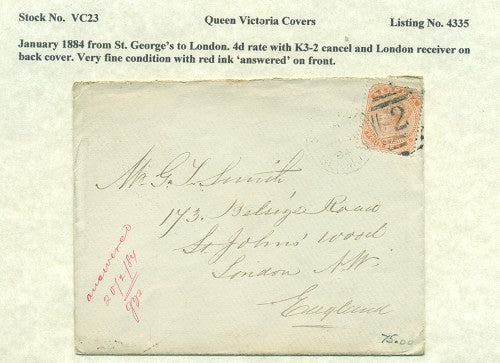 Stock No. VC23 Queen Victoria Covers Listing No. 4335
January 1884 from St. George's to London. 4d rate with K3-2 cancel and London receiver on
back cover. Very fine condition with red ink 'answered' on front.
2
Mr G. T. Smith
173. Belsize Road
St Johns Wood
London N.W.
England
answered
20/2/84
75.00